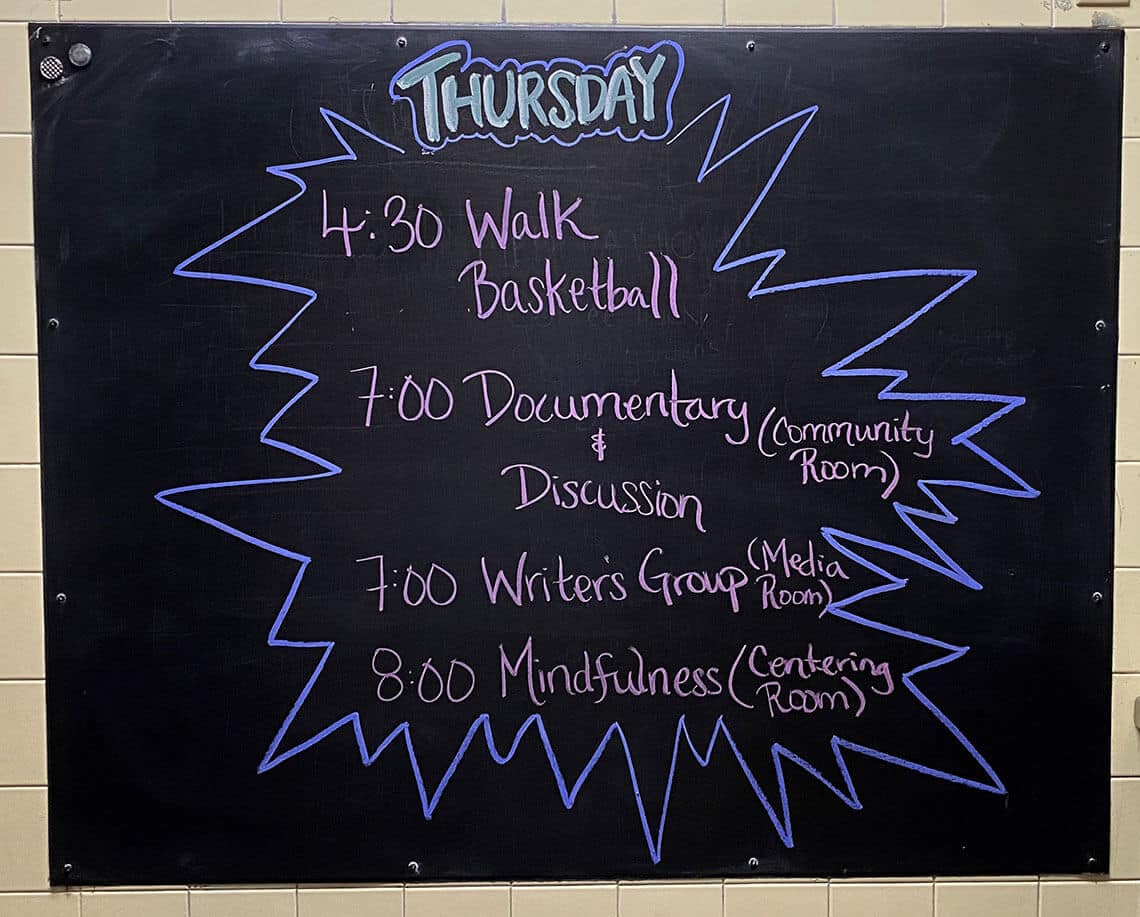 THURSDAY
4:30 Walk
Basketball
7:00 Documentary (Community
&
Room)
Discussion
7:00 Writer's Group (Media
Room)
8:00 Mindfulness (Centering
Room)